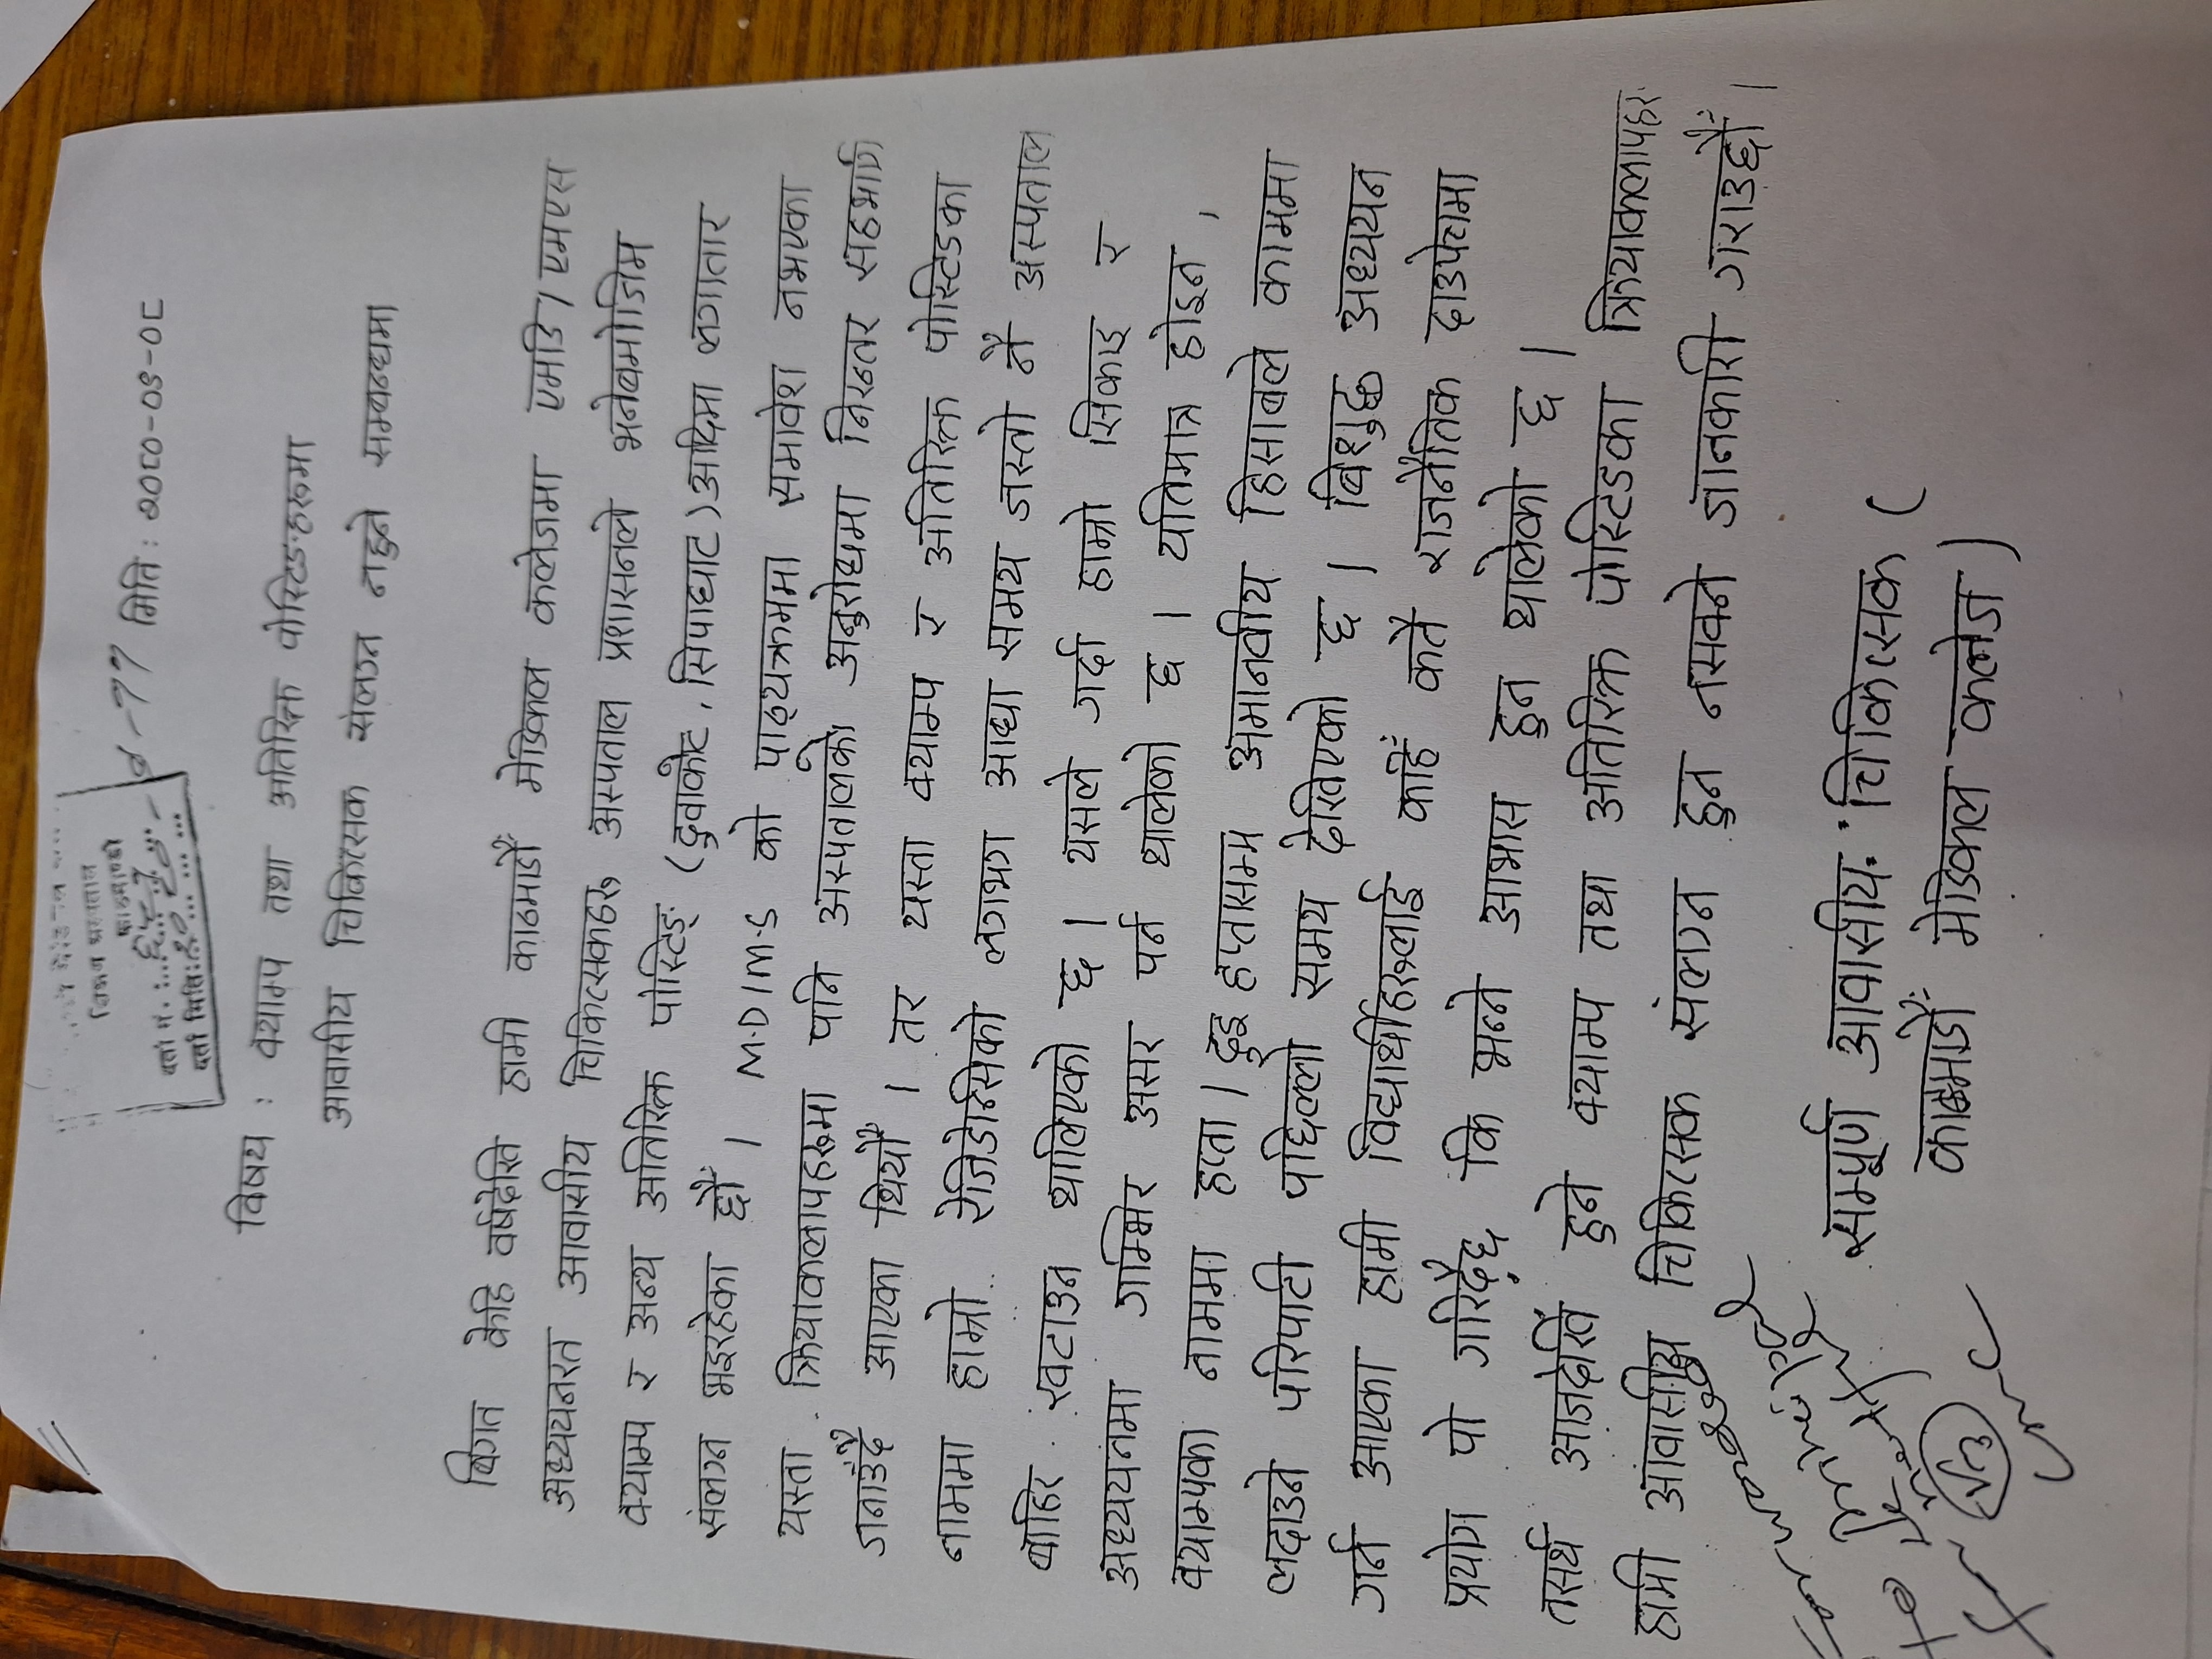 शिक्षण अस्पताल
काठमाण्डौ
दर्ता नं. :
दर्ता मिति:
मिति : २०८०-०६-०८
विषय : क्याम्प तथा अतिरिक्त पोस्टिङहरूमा
आवासीय चिकित्सक संलग्न नहुने सम्बन्धमा
बिगत केहि वर्षदेखि हामी काठमाडौँ मेडिकल कलेजमा एमडि/एमएस
अध्ययनरत आवासीय चिकित्सकहरू अस्पताल प्रशासनले भनेबमोजिम
क्याम्प र अन्य अतिरिक्त पोस्टिङ्ग (दुवाकोट, सिपाघाट) आदिमा लगातार
संलग्न भइरहेका छौँ । M.D/M.S को पाठ्यक्रममा समावेश नभएका
यस्ता क्रियाकलापहरूमा पनि अस्पतालको अनुरोधमा निरन्तर सहभागि
जनाउँदै आएका थियौँ । तर यस्ता क्याम्प र अतिरिक्त पोस्टिङका
नाममा हाम्रो रेजिडेन्सिको लगभग आधा समय जस्तो नै अस्पताल
बाहिर खटाउन थालिएको छ । यसले गर्दा हाम्रो सिकाइ र
अध्ययनमा गम्भिर असर पर्न थालेको छ । यतिमात्र होइन ,
क्याम्पका नाममा हप्ता / दुइ हप्तासम्म अमानवीय हिसाबले काममा
लदाउने परिपाटी पछिल्लो समय देखिएको छ । विशुद्ध अध्ययन
गर्न आएका हामी विद्यार्थीहरूलाई काहिँ कतै राजनैतिक दाउपेचमा
प्रयोग पो गरिदैछ कि भन्ने आभास हुन थालेको छ ।
तसर्थ आजदेखि हुने क्याम्प तथा अतिरिक्त पोस्टिङका क्रियाकलापहरू
हामी आवासीय चिकित्सक संलग्न हुन नसक्ने जानकारी गराउछौँ ।
सम्पूर्ण आवासीय चिकित्सक (
काठमाडौँ मेडिकल कलेज )